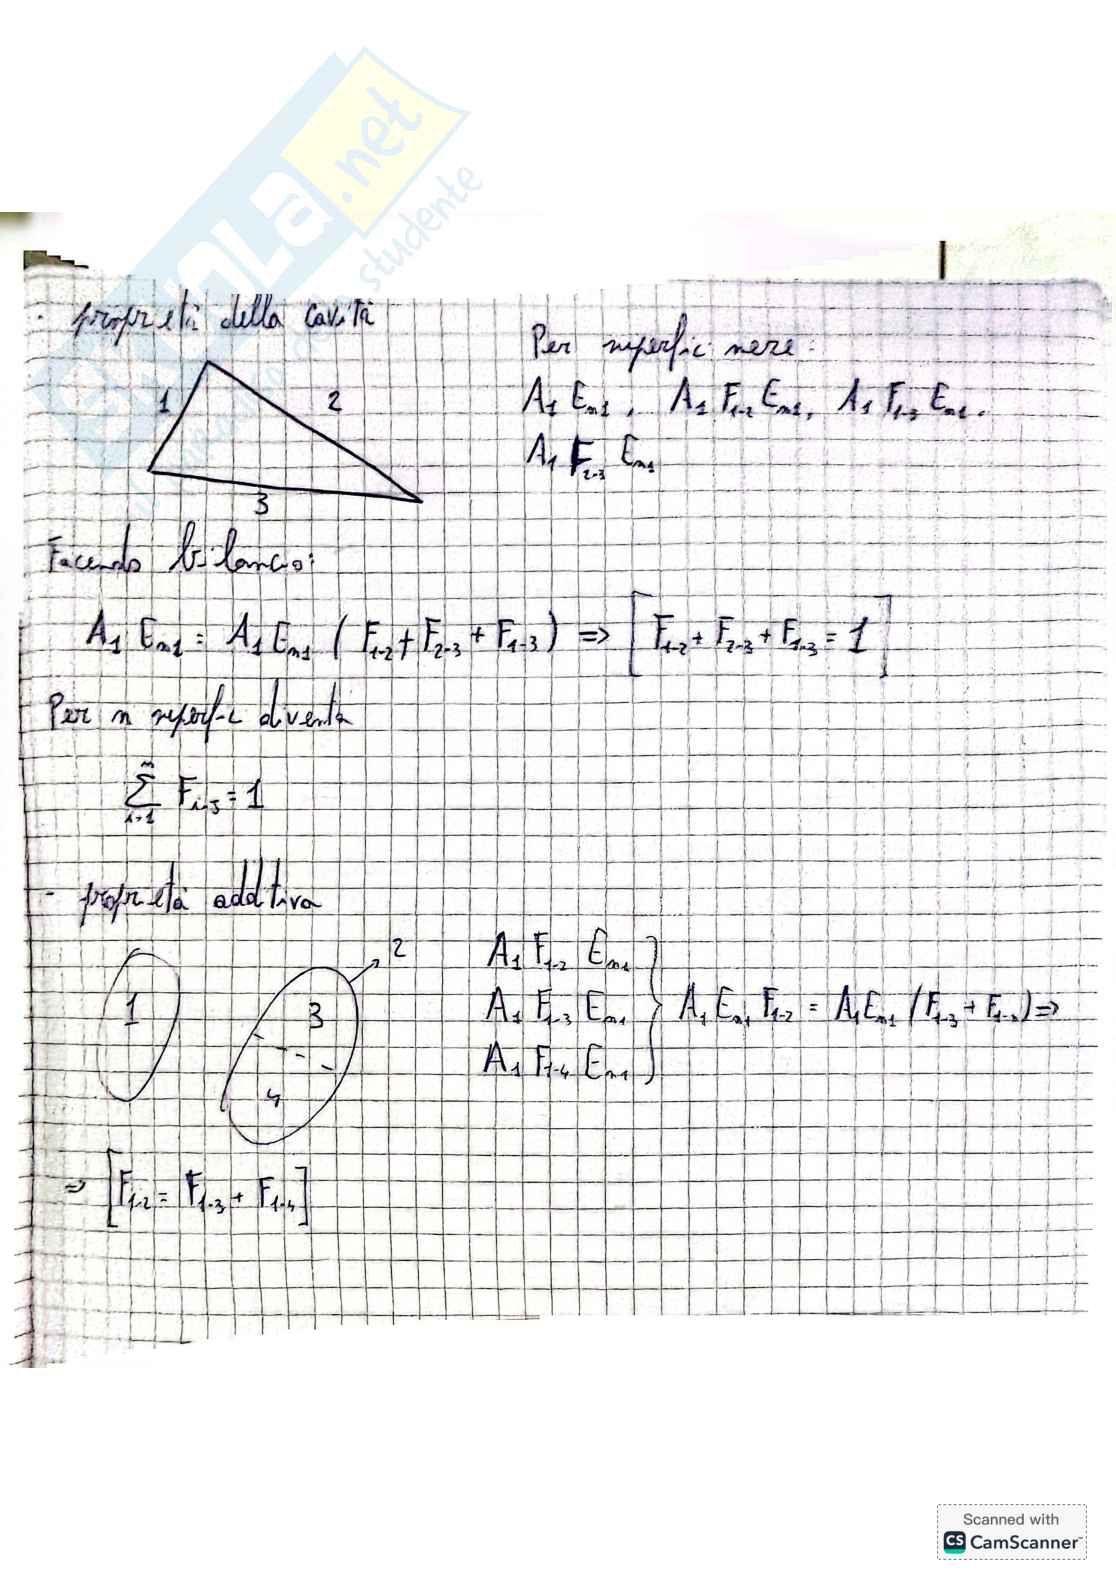 SKUOLA.net
studente
- proprietà della cavità
Per superfici nere:
1
2
3
A₁ Eₙ₁, A₁ F₁₋₂ Eₙ₁, A₁ F₁₋₃ Eₙ₁,
A₁ F₂₋₃ Eₙ₁
Facendo bilancio:
A₁ Eₙ₁ = A₁ Eₙ₁ (F₁₋₂ + F₂₋₃ + F₁₋₃) => [F₁₋₂ + F₂₋₃ + F₁₋₃ = 1]
Per n superfici diventa
∑ⁿᵢ₌₁ Fᵢ₋ⱼ = 1
- proprietà additiva
1
2
3
4
A₁ F₁₋₂ Eₙ₁
A₁ F₁₋₃ Eₙ₁
A₁ F₁₋₄ Eₙ₁
} A₁ Eₙ₁ F₁₋₂ = A₁ Eₙ₁ (F₁₋₃ + F₁₋₄) =>
=> [F₁₋₂ = F₁₋₃ + F₁₋₄]
Scanned with
CS CamScanner